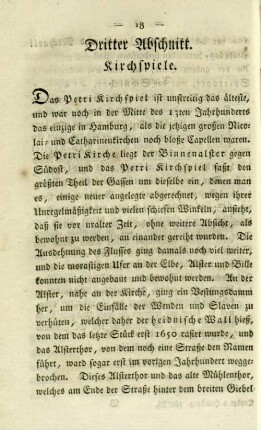 — 18 —
Dritter Abschnitt.
Kirchspiele.
Das Petri Kirchspiel ist unstreitig das älteste,
und war noch in der Mitte des 13ten Jahrhunderts
das einzige in Hamburg, als die jetzigen großen Nico-
lai- und Catharinenkirchen noch bloße Capellen waren.
Die Petri Kirche liegt der Binnenalster gegen
Südost, und das Petri Kirchspiel faßt den
größten Theil der Gassen um dieselbe ein, denen man
es, einige neuer angelegte abgerechnet, wegen ihrer
Unregelmäßigkeit und vielen schiefen Winkeln, ansieht,
daß sie vor uralter Zeit, ohne weitere Absicht, als
bewohnt zu werden, an einander gereiht wurden. Die
Ausdehnung des Flusses ging damals noch viel weiter,
und die morastigen Ufer an der Elbe, Alster und Bille
konnten nicht angebaut und bewohnt werden. An der
Alster, nähe an der Kirche, ging ein Vestungsdamm
her, um die Einfälle der Wenden und Slaven zu
verhüten, welcher daher der heidnische Wall hieß,
von dem das letzte Stück erst 1650 rasirt wurde, und
das Alsterthor, von dem noch eine Straße den Namen
führt, ward sogar erst im vorigen Jahrhundert wegge-
brochen. Dieses Alsterthor und das alte Mühlenthor,
welches am Ende der Straße hinter dem breiten Giebel